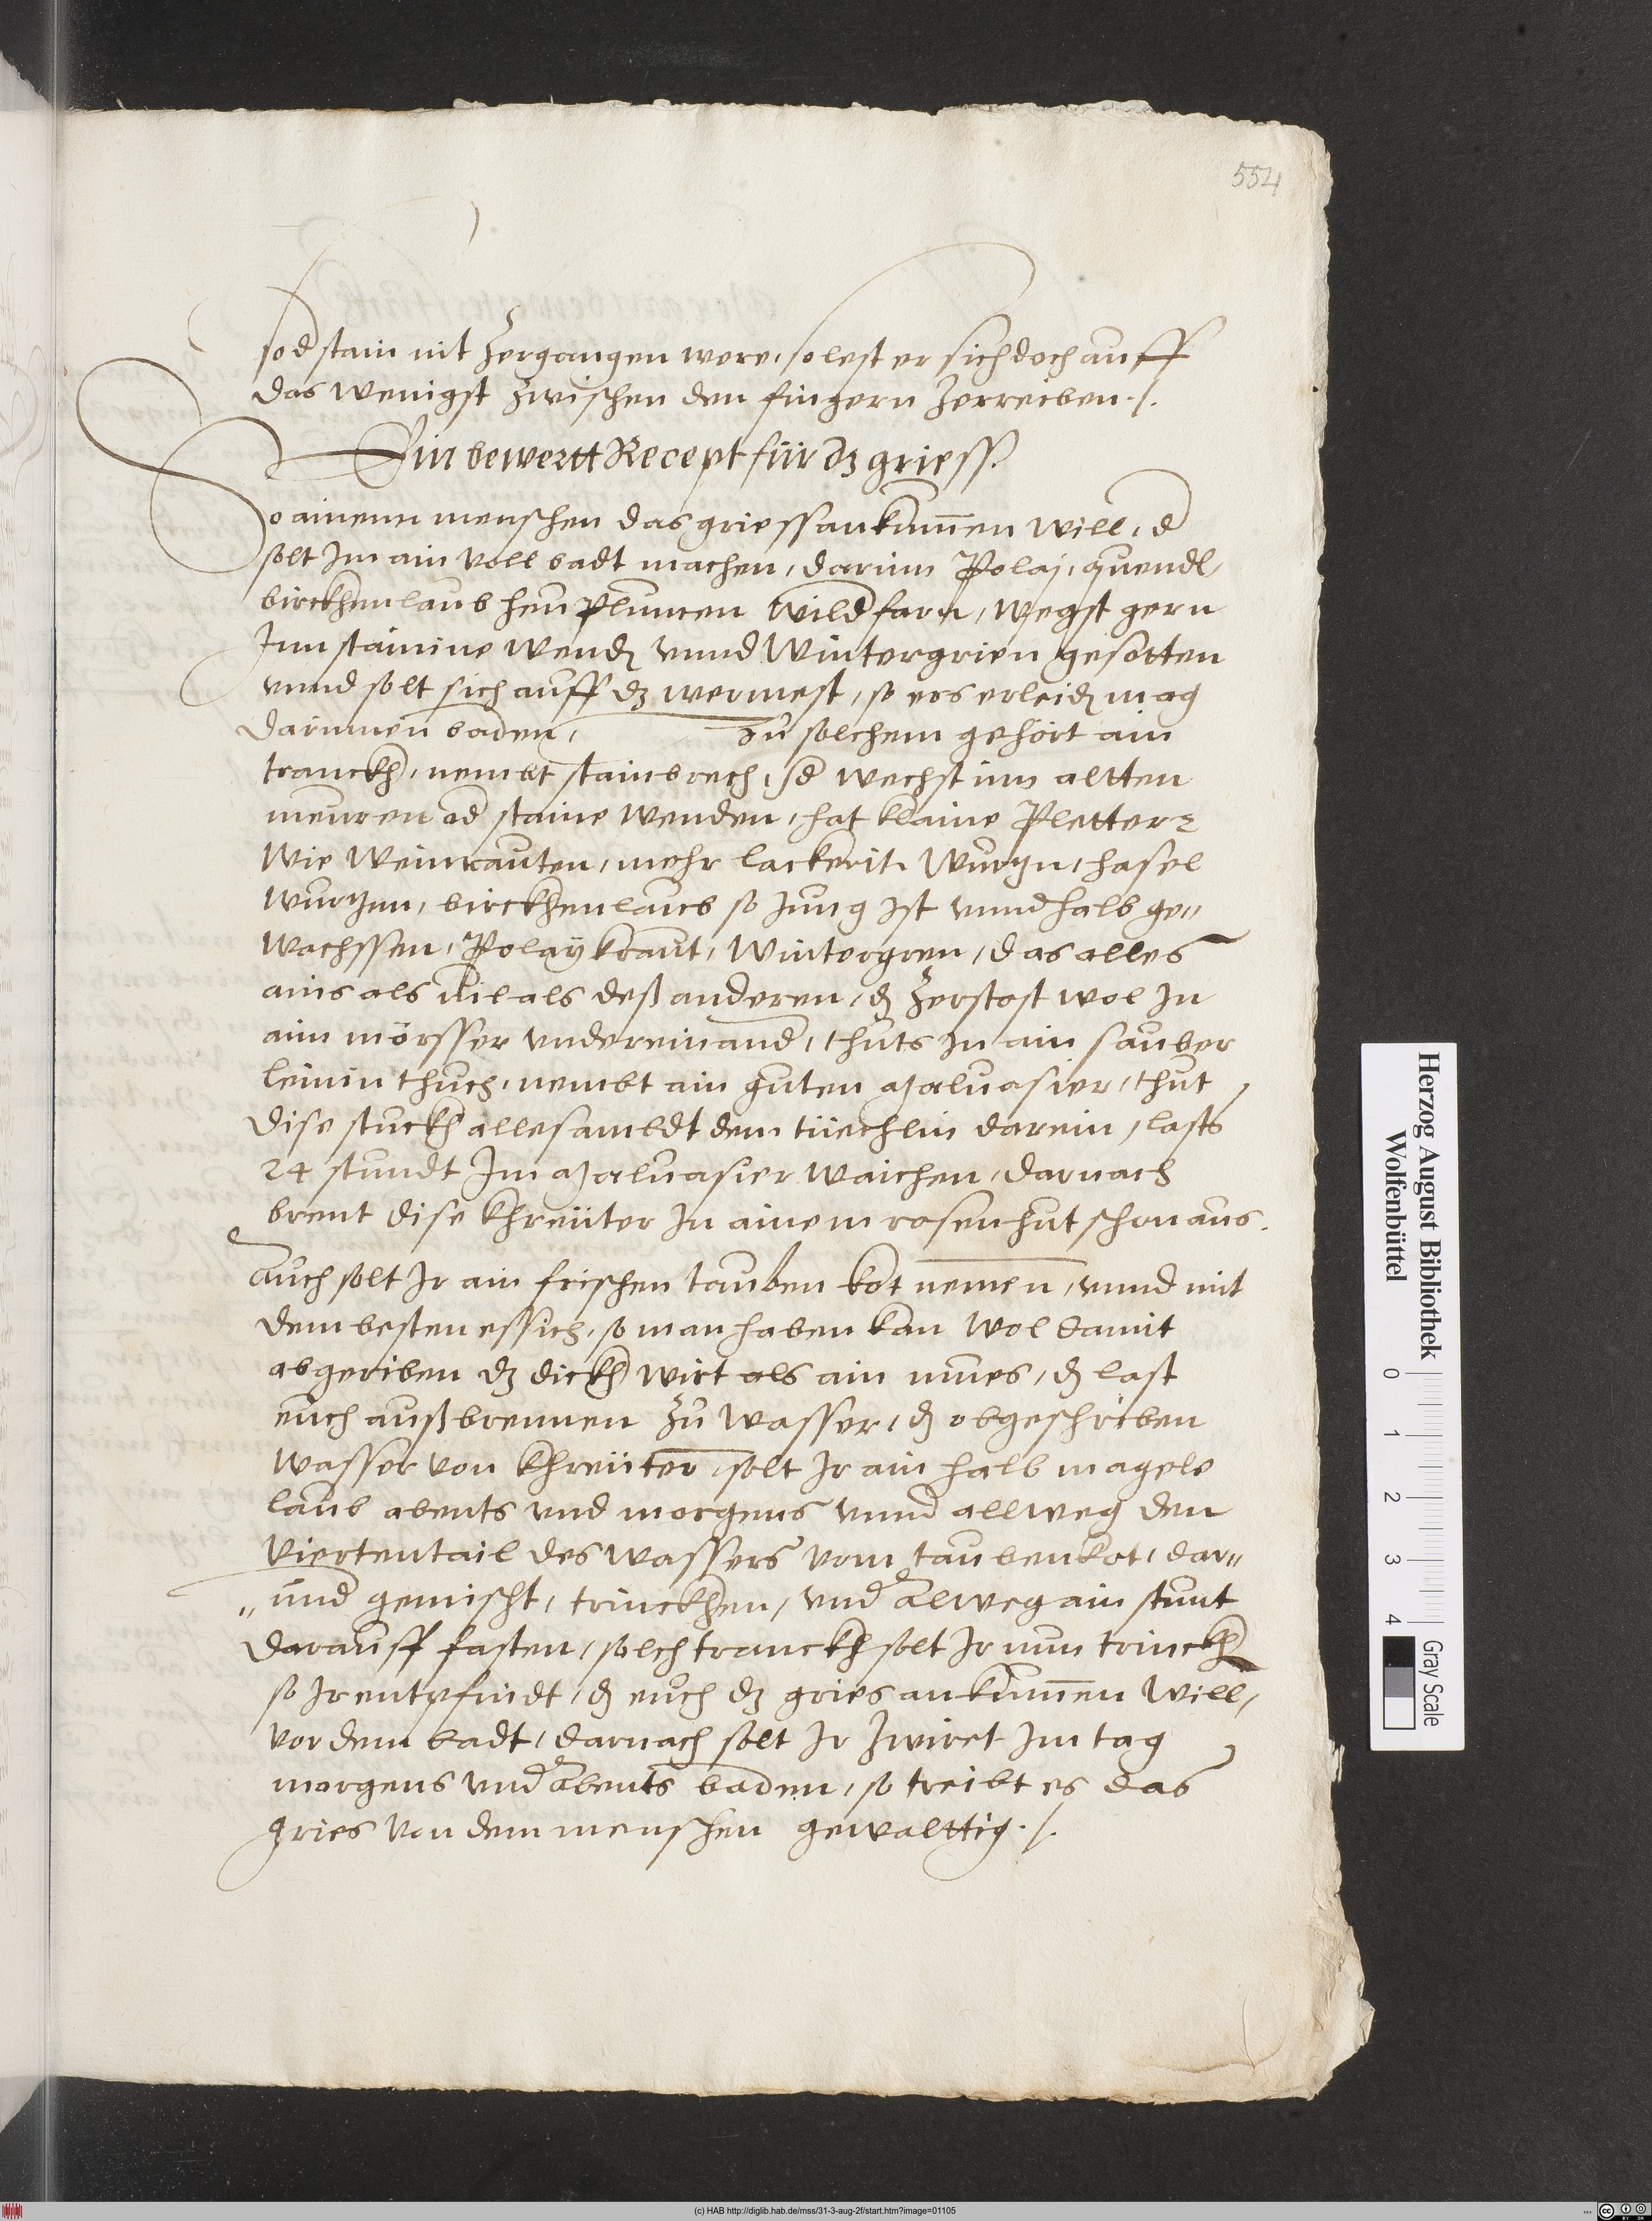 554
so d stain nit zergangen were, so lest er sich doch auff
das wenigst zwischen den fingern zerreiben ./.
Ein bewertt Recept für dz griess.
So ainem menschen das griess ankumen will, d
solt Im ain voll badt machen, darinn Polaj, quendl,
birckhenlaub heuplumen wildfarn, wegst gern
Inn stainine wendn vnnd Wintergrien gesotten
vnnd solt sich auff dz wermest, so ers erleidn mag
darinnen baden, zu solchem gehört ain
tranckh, nembt stainbrech, so wechst inn altten
meuren od staine wenden, hat klaine Pletter
wie weinrauten, mehr lackerit wurzn, hasel
wurtzen, birckhenlaub so Jung Ist vnnd halb ge„
wachssen, Polaÿ kraut, Wintergren, das alles
ains als vil als deß anderen, dz zerstost wol In
aim mörsser vndereinand, thuts In ain sauber
leinin thuch, nembt ain guten Malvasier, thut
dise stuckh alle sambdt dem tüechlin darein, lasts
24 stundt Im Malvasier waichen, darnach
brent dise khreüter In ainem rosenhut schon aus.
auch solt Ir ain frischen tauben kot nemen, vnnd mit
dem besten essich, so man haben kan wol damit
abgeriben dz dickh wirt als ain mues, dz last
euch außbrennen zu wasser, dz obgeschriben
wasser von khreüter, solt Ir ain halb magele
laub abents vnd morgens vnnd allweg den
viertentail des wassers vom taubenkot, dar„
„und gemischt, trinckhen, vnd alweg ain stunt
darauff fasten, solch tranckh solt Ir nun trinckh
so Ir entpfindt, dz euch dz gries ankumen will,
vor dem badt, darnach solt Ir zwiret Im tag
morgens vnd abents baden, so treibt es das
gries von dem menschen gewalttig ./.
Herzog August Bibliothek
Wolfenbüttel
0 1 2 3 4
Gray Scale
(c) HAB http://diglib.hab.de/mss/31-3-aug-2f/start.htm?image=01105